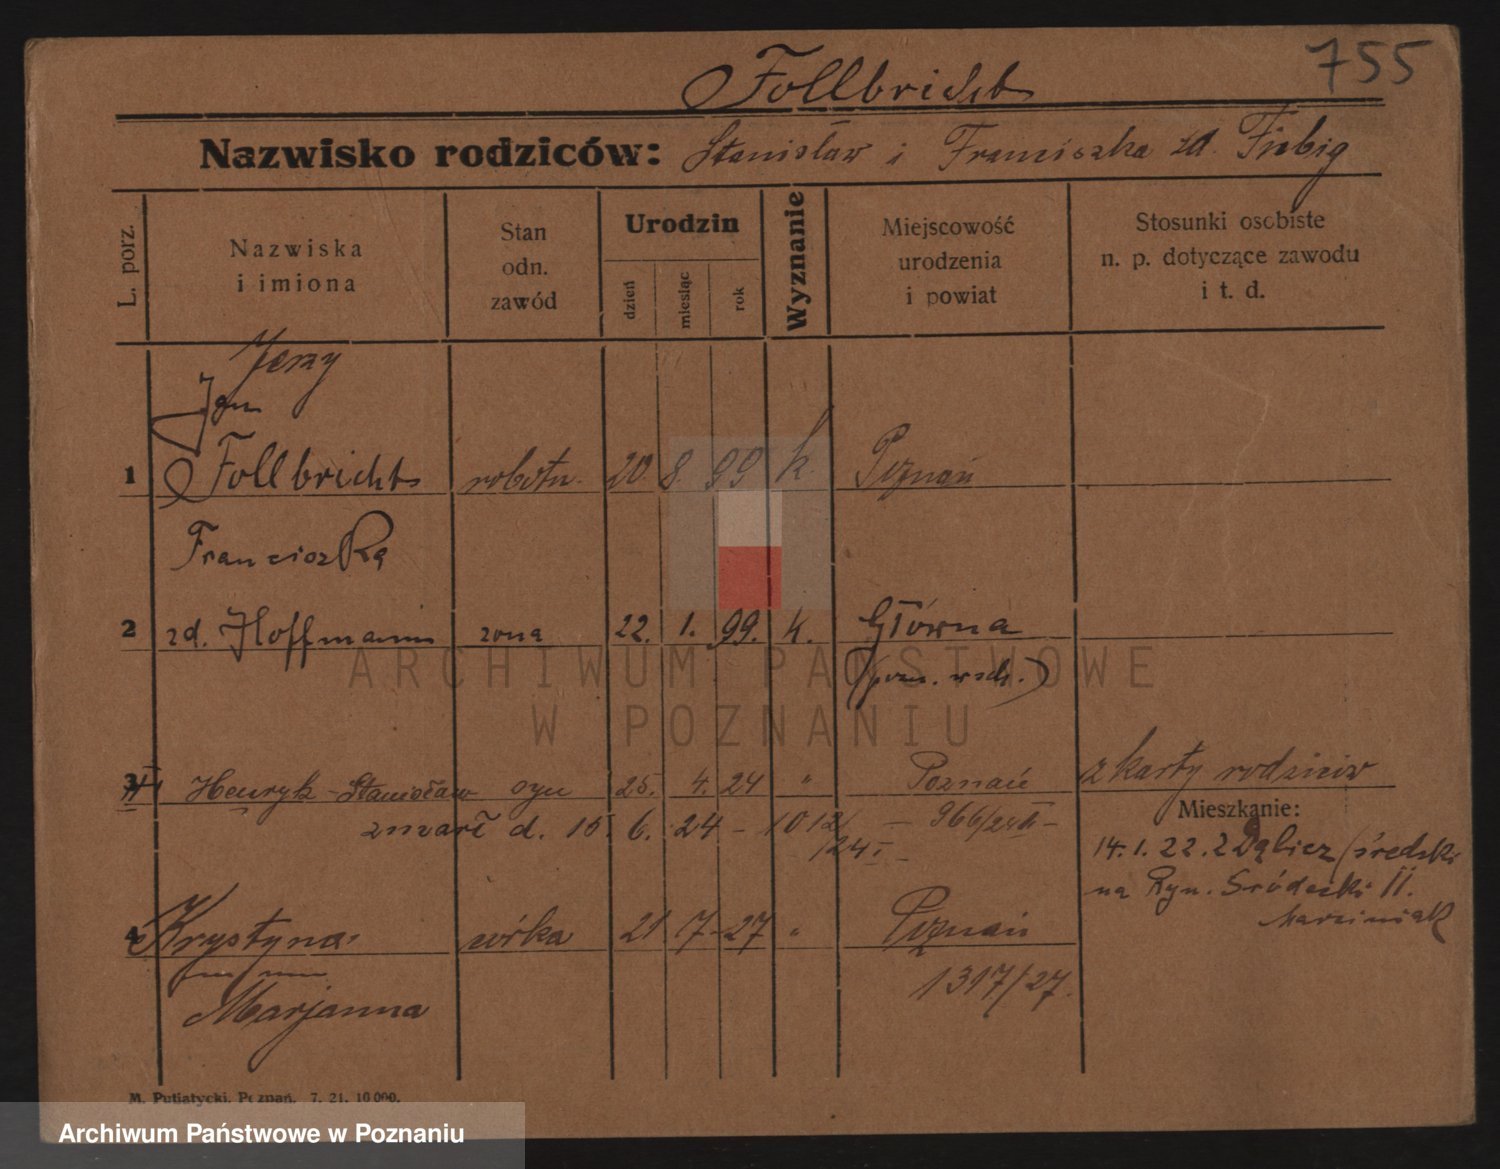 755
Follbricht
Nazwisko rodziców: Stanisław i Franciszka zd. Fiebig
L. porz.
Nazwiska i imiona
Stan odn. zawód
Urodzin
dzień miesiąc rok
Wyznanie
Miejscowość urodzenia i powiat
Stosunki osobiste n. p. dotyczące zawodu i t. d.
Jerzy
Jan
1 Follbricht robotn. 20. 8. 99 k. Poznań
Franciszka
2 zd. Hoffmann żona 22. 1. 99. k. Główna
(pozn. wsch.)
3 Henryk-Stanisław syn 25. 4. 24 " Poznań z karty rodziców
zmarł d. 15. 6. 24 - 1012/24 I - 966/24 II -
Mieszkanie:
14.1.22. z (średzki
na Ryn. Śródecki 11.
Marciniak
4 Krystyna córka 21 7-27 " Poznań
1317/27.
Marjanna
M. Putiatycki, Poznań. 7. 21. 10 000.
ARCHIWUM PAŃSTWOWE
W POZNANIU
Archiwum Państwowe w Poznaniu